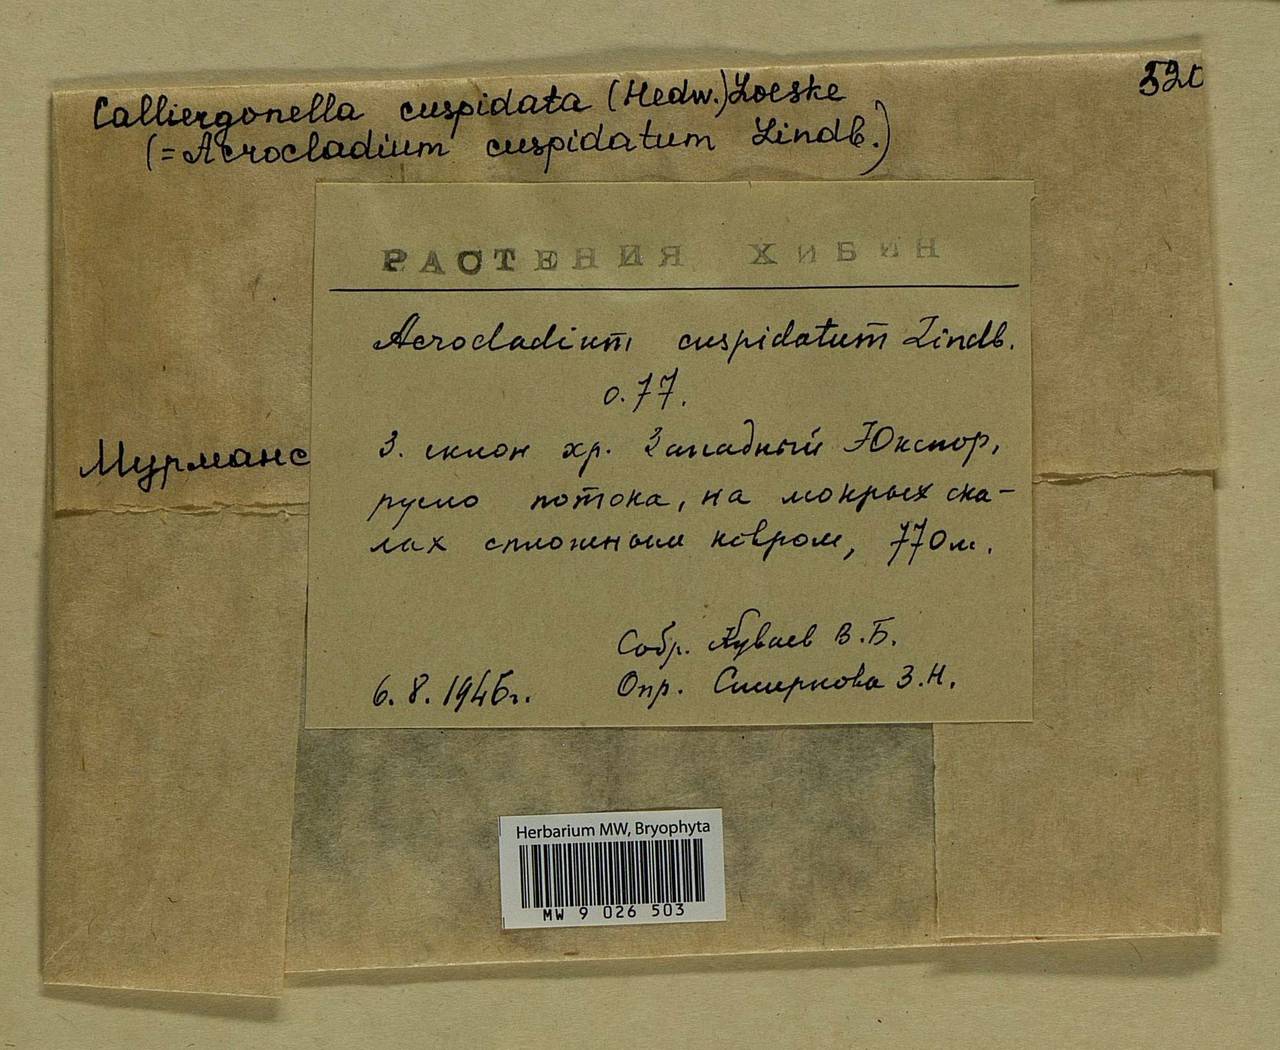 520
Calliergonella cuspidata (Hedw.) Loeske
(= Acrocladium cuspidatum Lindb.)
РАСТЕНИЯ ХИБИН
Acrocladium cuspidatum Lindb.
о. 77.
Мурманс
З. склон хр. Западный Юкспор,
русло потока, на мокрых ска-
лах сплошным ковром, 770 м.
Собр. Куваев В.Б.
6.8.1946г. Опр. Смирнова З.Н.
Herbarium MW, Bryophyta
MW 9 026 503